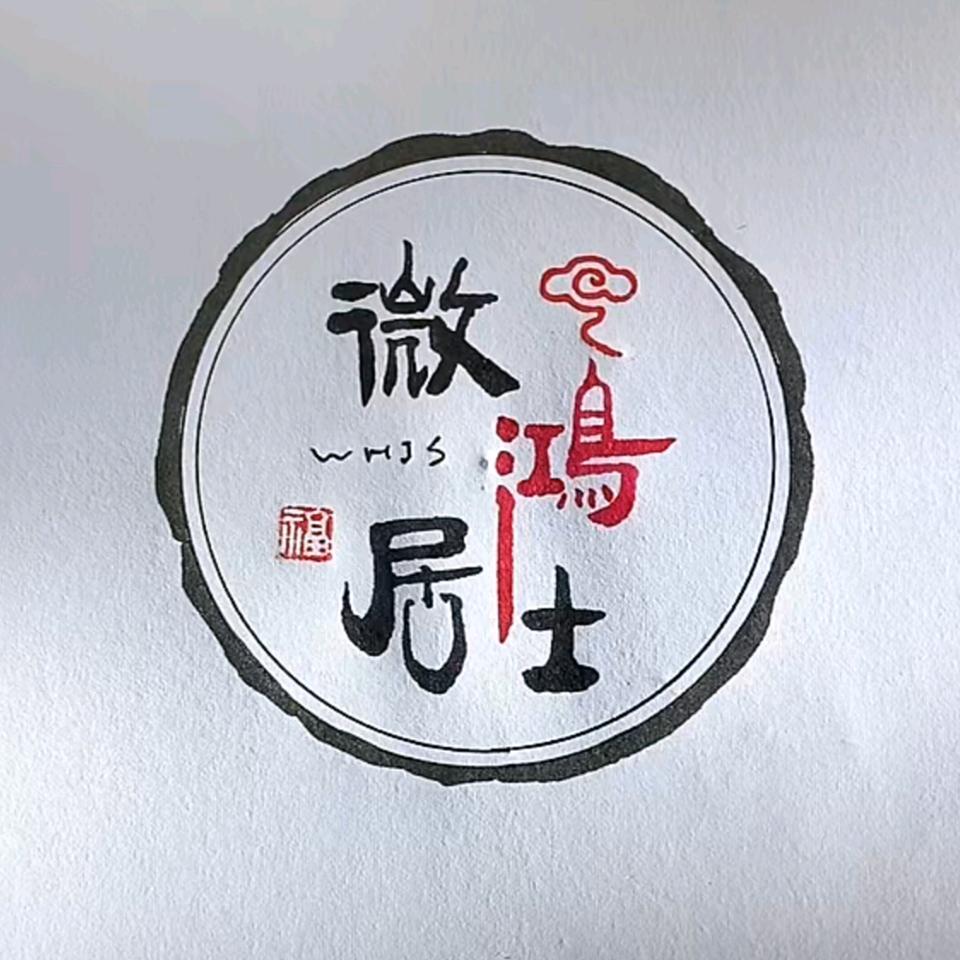 微鴻
WHJS
居士
福